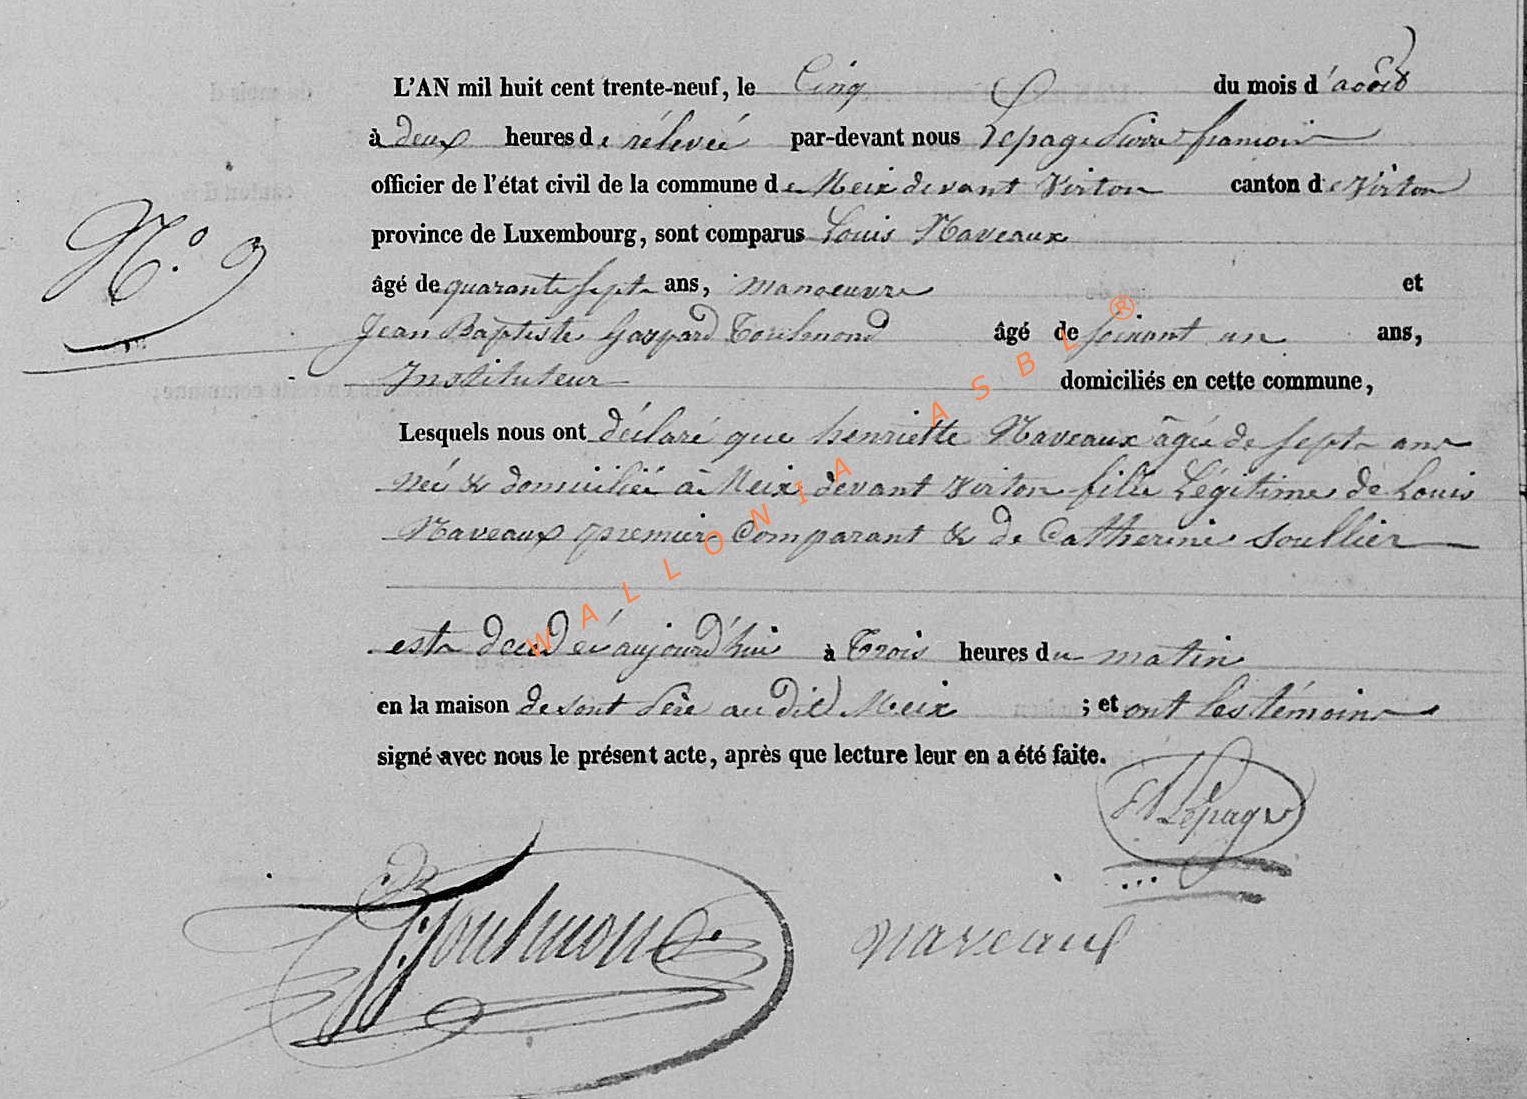 L'AN mil huit cent trente-neuf, le Cinq du mois d'août
à deux heures de rélevée par-devant nous Lepage Pierre françois
officier de l'état civil de la commune de Meix devant Virton canton de Virton
province de Luxembourg, sont comparus Louis Naveaux
N.° 9
âgé de quarante sept ans, manoeuvre et
Jean Baptiste Gaspard Toulmond âgé de soixant un ans,
Instituteur domiciliés en cette commune,
Lesquels nous ont déclaré que henriette Naveaux âgée de sept ans
née & domiciliée à Meix devant Virton fille Légitime de Louis
Naveaux premier Comparant & de Catherine Soullier
est décédée aujourd'hui à Trois heures du matin
en la maison de sont Père au dit Meix ; et ont les témoins
signé avec nous le présent acte, après que lecture leur en a été faite.
Lepage
Toulmond Naveaux
WALLONIA ASBL ®